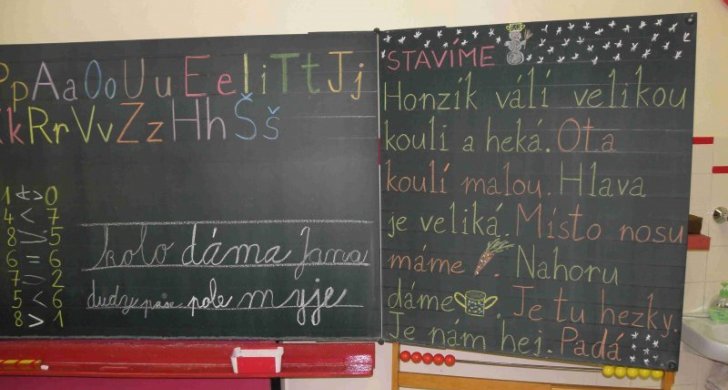 Pp Aa Oo Uu Ee Ii Tt Jj
Kk Rr Vv Zz Hh Šš
4 < 7
8 > 5
6 = 6
7 > 2
5 < 6
8 > 1
kolo dáma Jana
pole myje
STAVÍME
Honzík válí velikou
kouli a heká. Ota
koulí malou. Hlava
je veliká. Místo nosu
máme . Nahoru
dáme . Je tu hezky.
Je nám hej. Padá